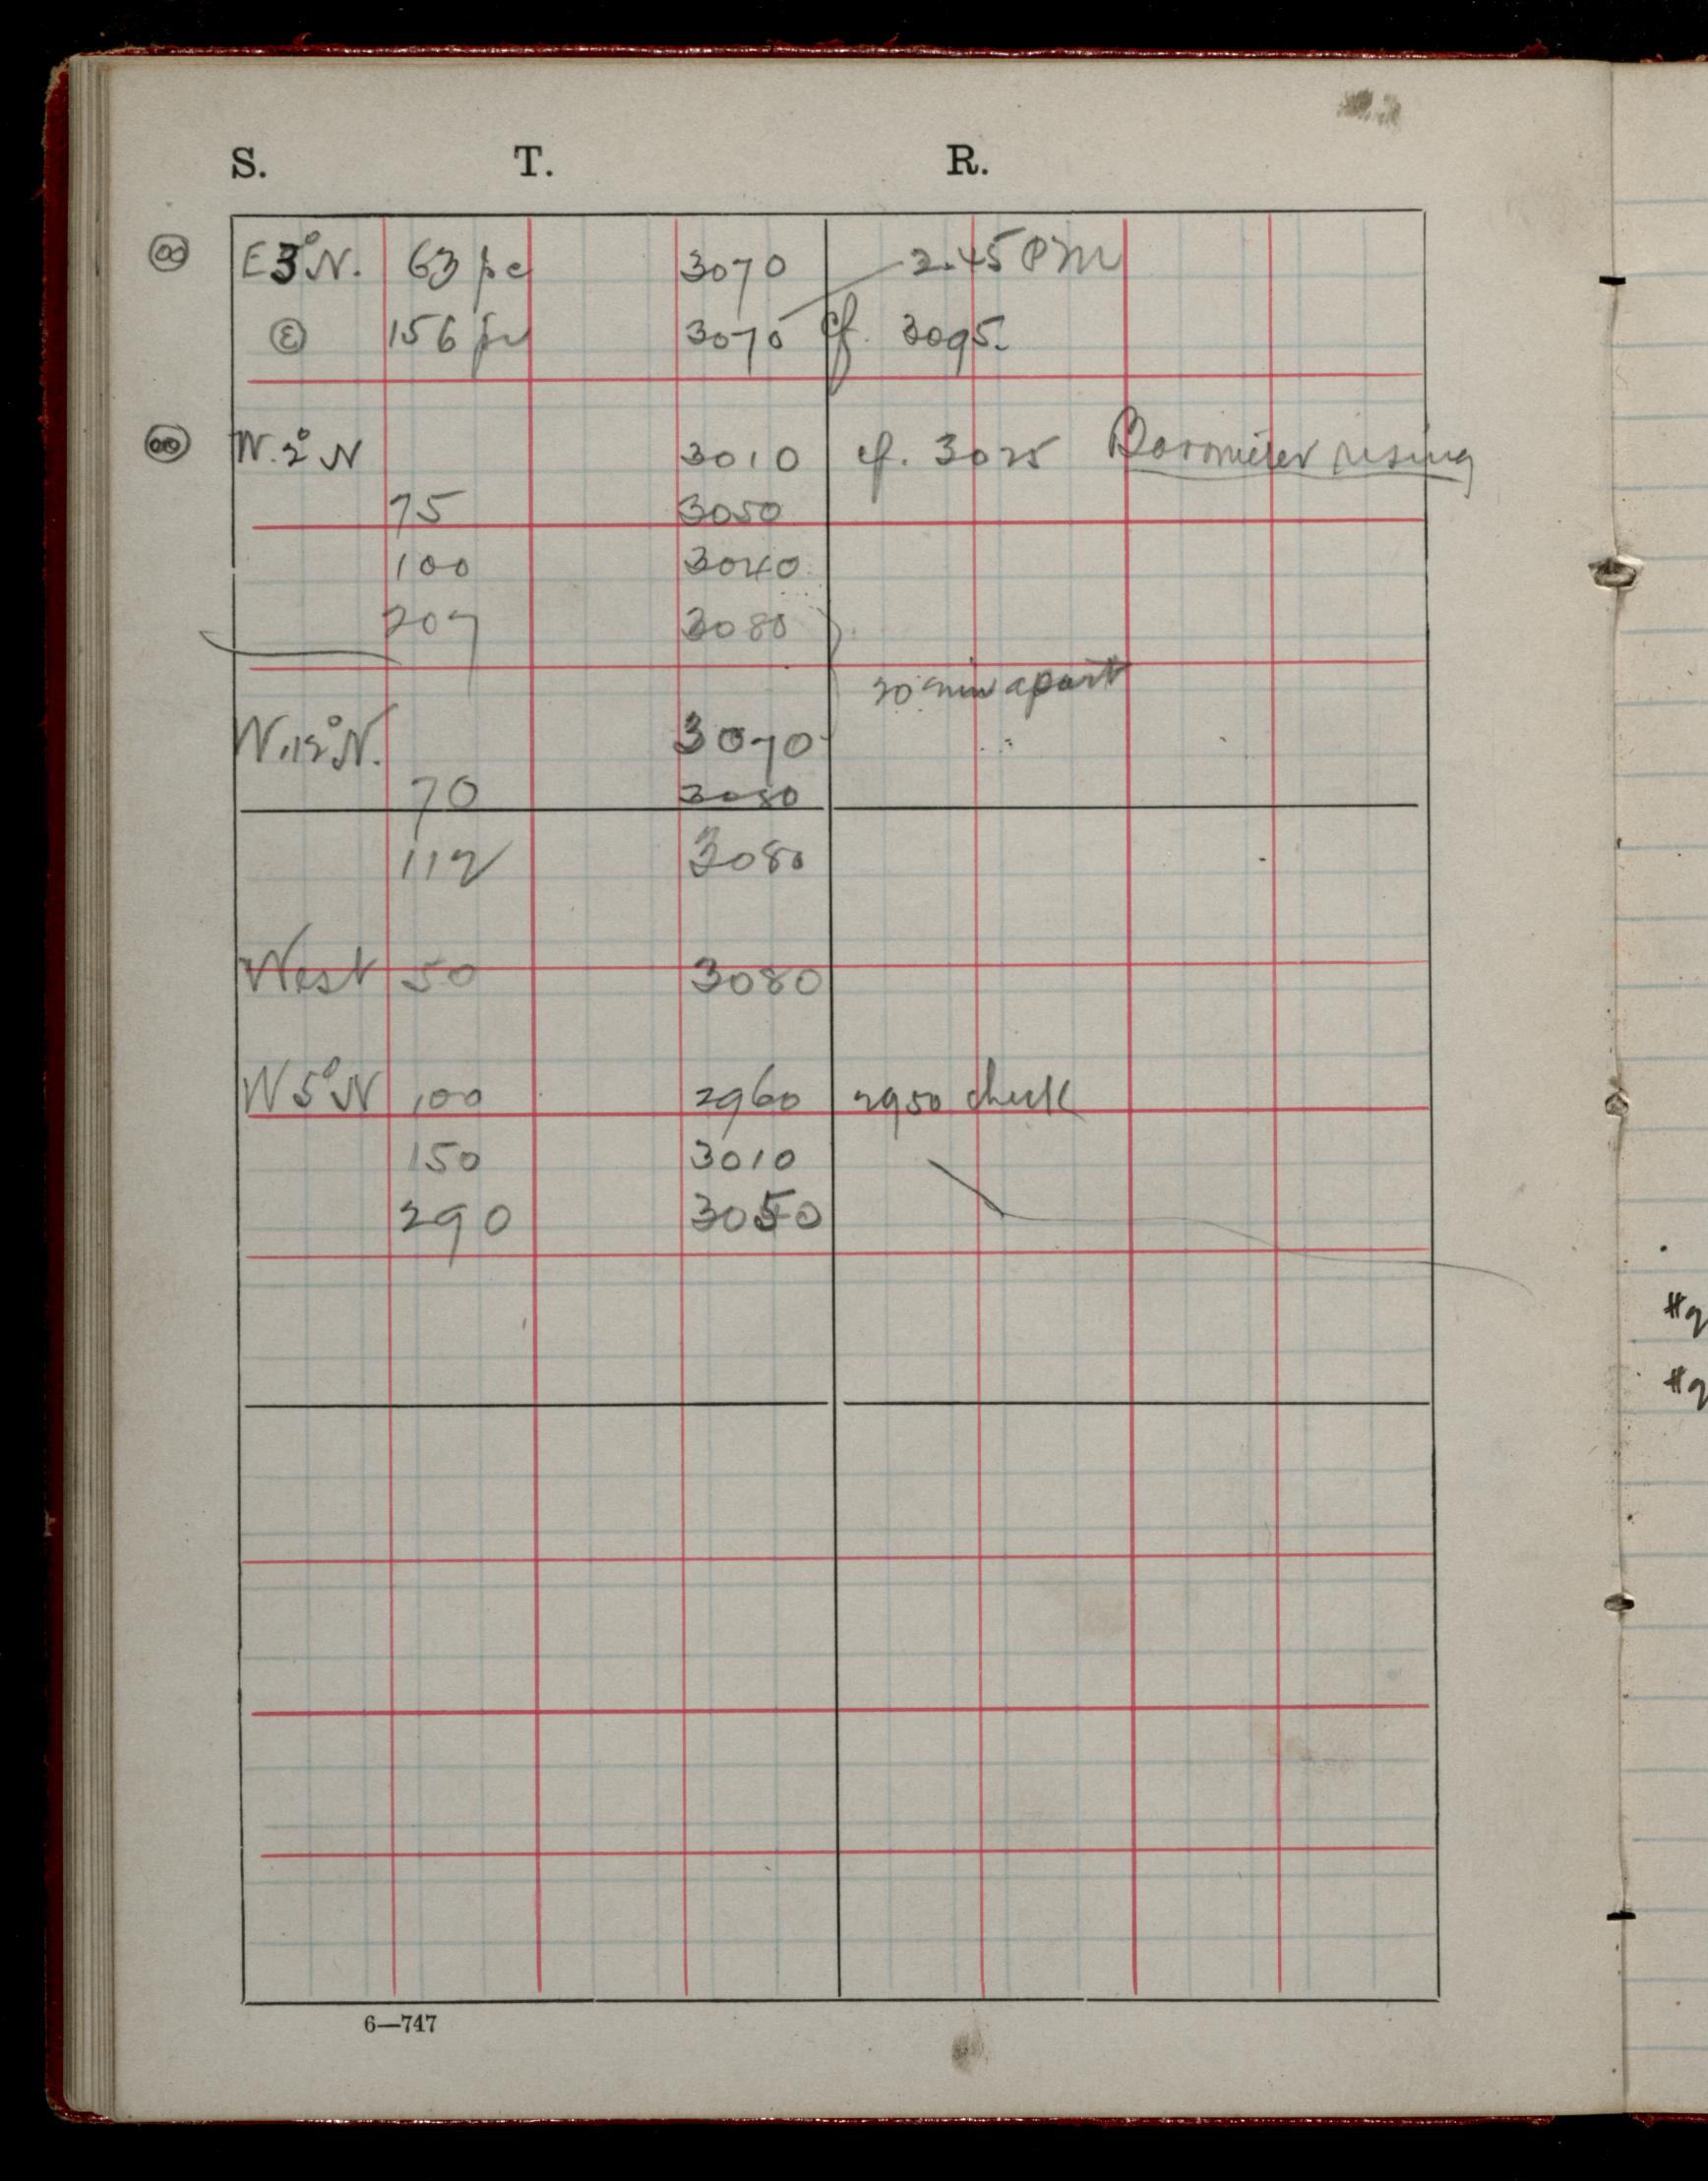 S. T. R.
∞ E 3° N. 63 pc 3070 2.45 PM
ε 156 pc 3075 cf. 3095.
∞ W. 2° N 3010 cf. 3025 Barometer rising
75 3050
100 3040
207 3080
20 min apart
W. 12° N. 3070
70 3080
112 3080
West 50 3080
W 5° N 100 2960 2950 check
150 3010
290 3050
6—747
#2
#2